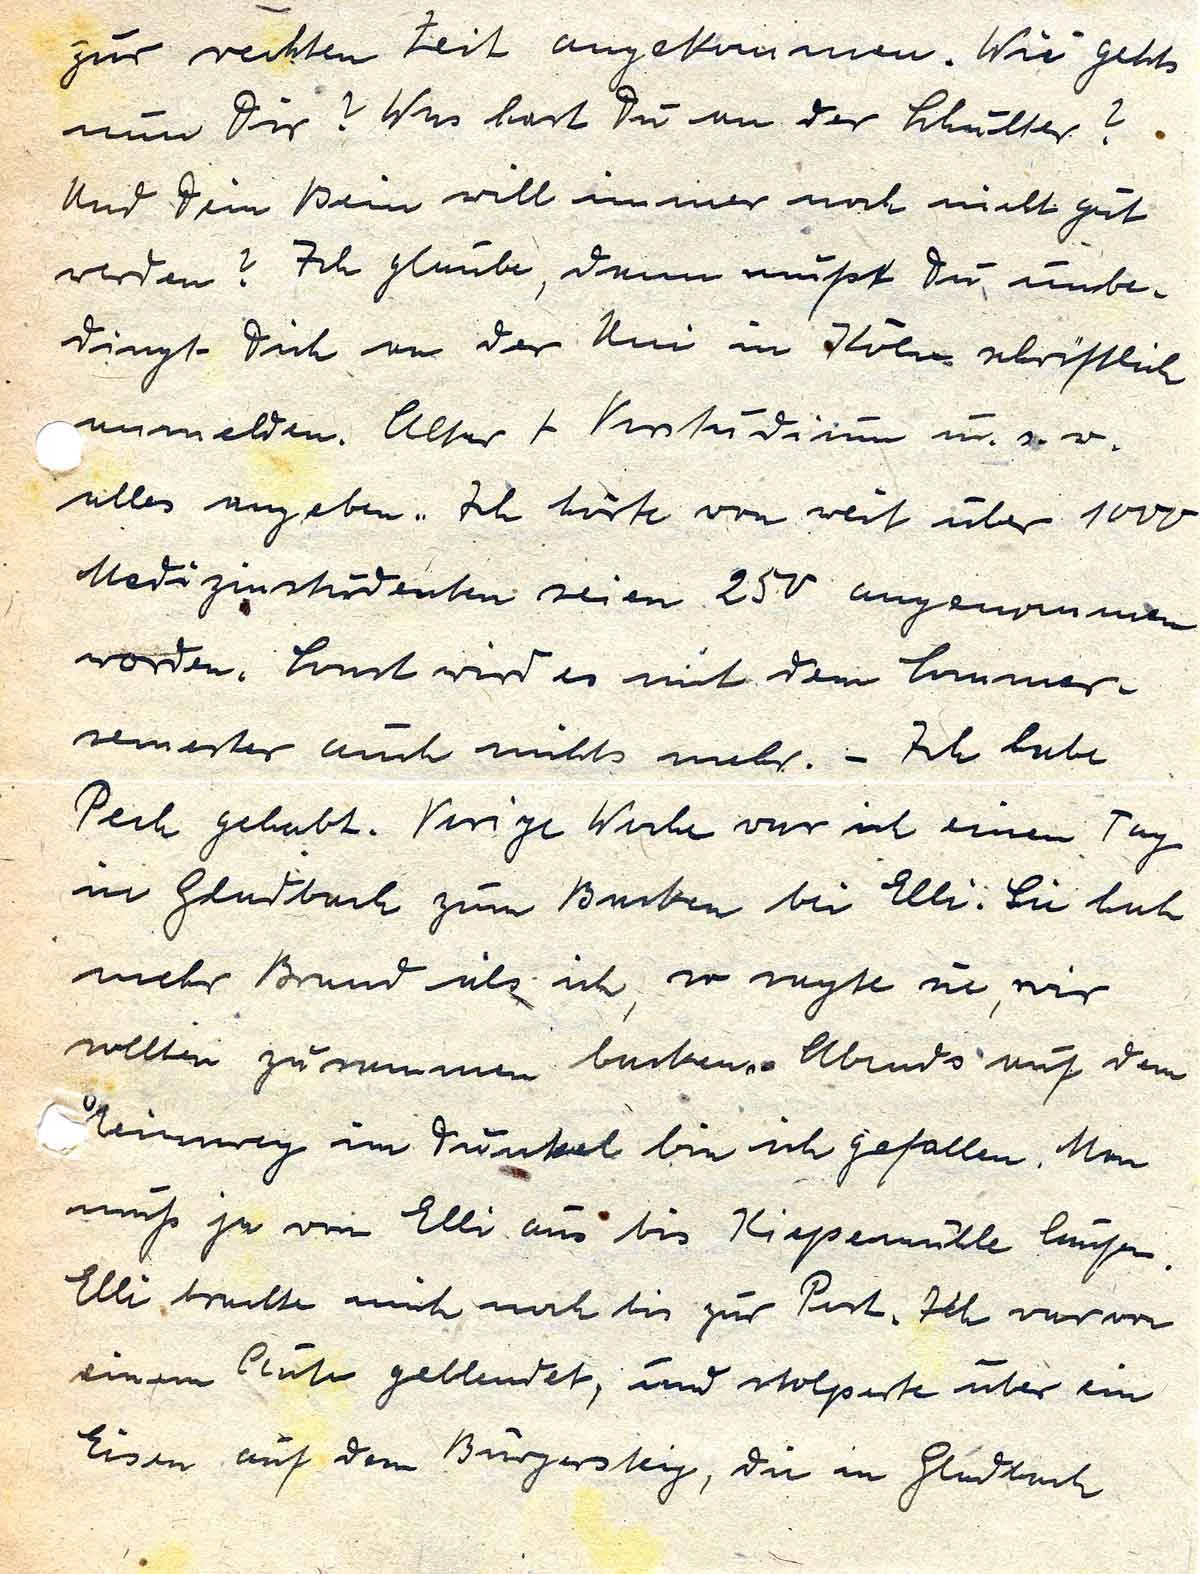 zur rechten Zeit angekommen. Wie gehts
nun Dir? Was hast Du an der Schulter?
Und Dein Bein will immer noch nicht gut
werden? Ich glaube, dann mußt Du unbe-
dingt Dich an der Uni in Köln schriftlich
anmelden. Alter + Vorstudium u. s. w.
alles angeben. Ich hörte von weit über 1000
Medizinstudenten seien 250 angenommen
worden. Sonst wird es mit dem Sommer-
semester auch nichts mehr. – Ich habe
Pech gehabt. Vorige Woche war ich einen Tag
in Gladbach zum Backen bei Elli. Sie hat
mehr Brand als ich, so sagte sie, wir
sollten zusammen backen. Abends auf dem
Heimweg im Dunkel bin ich gefallen. Man
muß ja von Elli aus bis Kiepemühle laufen.
Elli brachte mich noch bis zur Post. Ich war von
einem Auto geblendet, und stolperte über ein
Eisen auf dem Bürgersteig, die in Gladbach